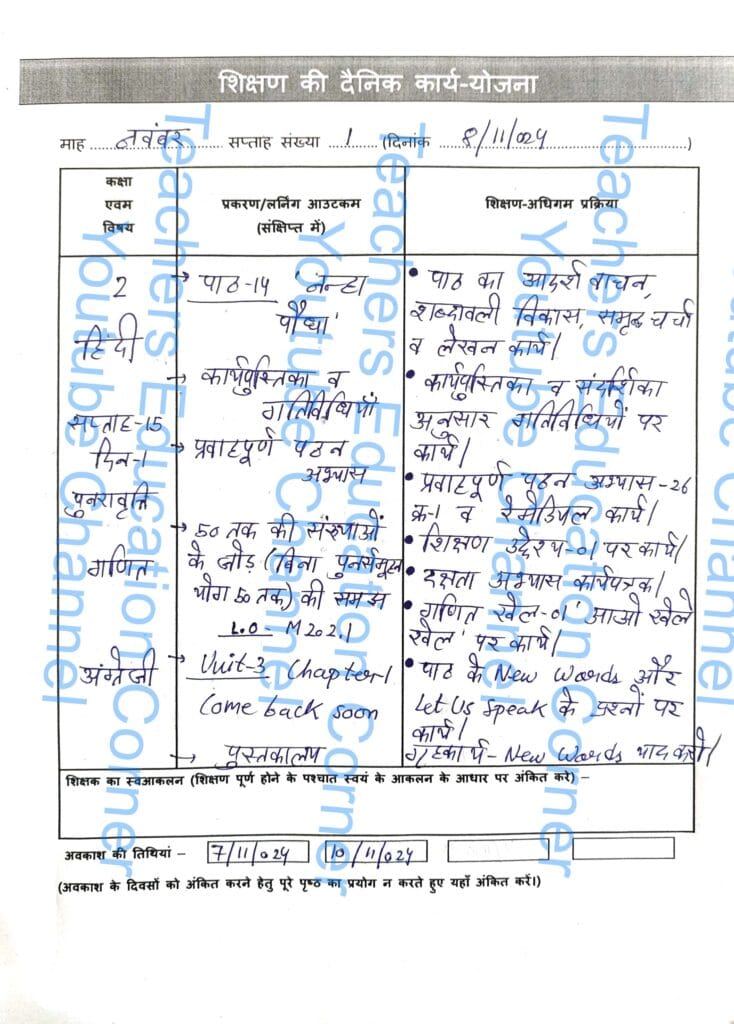 शिक्षण की दैनिक कार्य-योजना
माह नवंबर सप्ताह संख्या 1 (दिनांक 8/11/024)
कक्षा
एवम
विषय
प्रकरण/लर्निंग आउटकम
(संक्षिप्त में)
शिक्षण-अधिगम प्रक्रिया
2
हिंदी
सप्ताह-15
दिन-1
पुनरावृत्ति
गणित
अंग्रेजी
→ पाठ-14 'नन्हा
पौधा'
→ कार्यपुस्तिका व
गतिविधियाँ
→ प्रवाहपूर्ण पठन
अभ्यास
→ 50 तक की संख्याओं
के जोड़ (बिना पुनर्समूह
योग 50 तक) की समझ
L.O - M202.1
→ Unit-3 Chapter-1
Come back soon
→ पुस्तकालय
• पाठ का आदर्श वाचन,
शब्दावली विकास, समृद्ध चर्चा
व लेखन कार्य।
• कार्यपुस्तिका व संदर्शिका
अनुसार गतिविधियों पर
कार्य।
• प्रवाहपूर्ण पठन अभ्यास-26
क्र-1 व रेमेडियल कार्य।
• शिक्षण उद्देश्य-01 पर कार्य।
• दक्षता अभ्यास कार्यपत्रक।
• गणित खेल-01 'आओ खेले
खेल' पर कार्य।
• पाठ के New Words और
Let Us Speak के प्रश्नों पर
कार्य।
गृहकार्य- New Words याद करो।
शिक्षक का स्वआकलन (शिक्षण पूर्ण होने के पश्चात स्वयं के आकलन के आधार पर अंकित करे) –
अवकाश की तिथियां – 7/11/024 10/11/024
(अवकाश के दिवसों को अंकित करने हेतु पूरे पृष्ठ का प्रयोग न करते हुए यहाँ अंकित करें।)
Teachers Education Corner
Youtube Channel
Teachers Education Corner
Youtube Channel
Teachers Education Corner
Youtube Channel